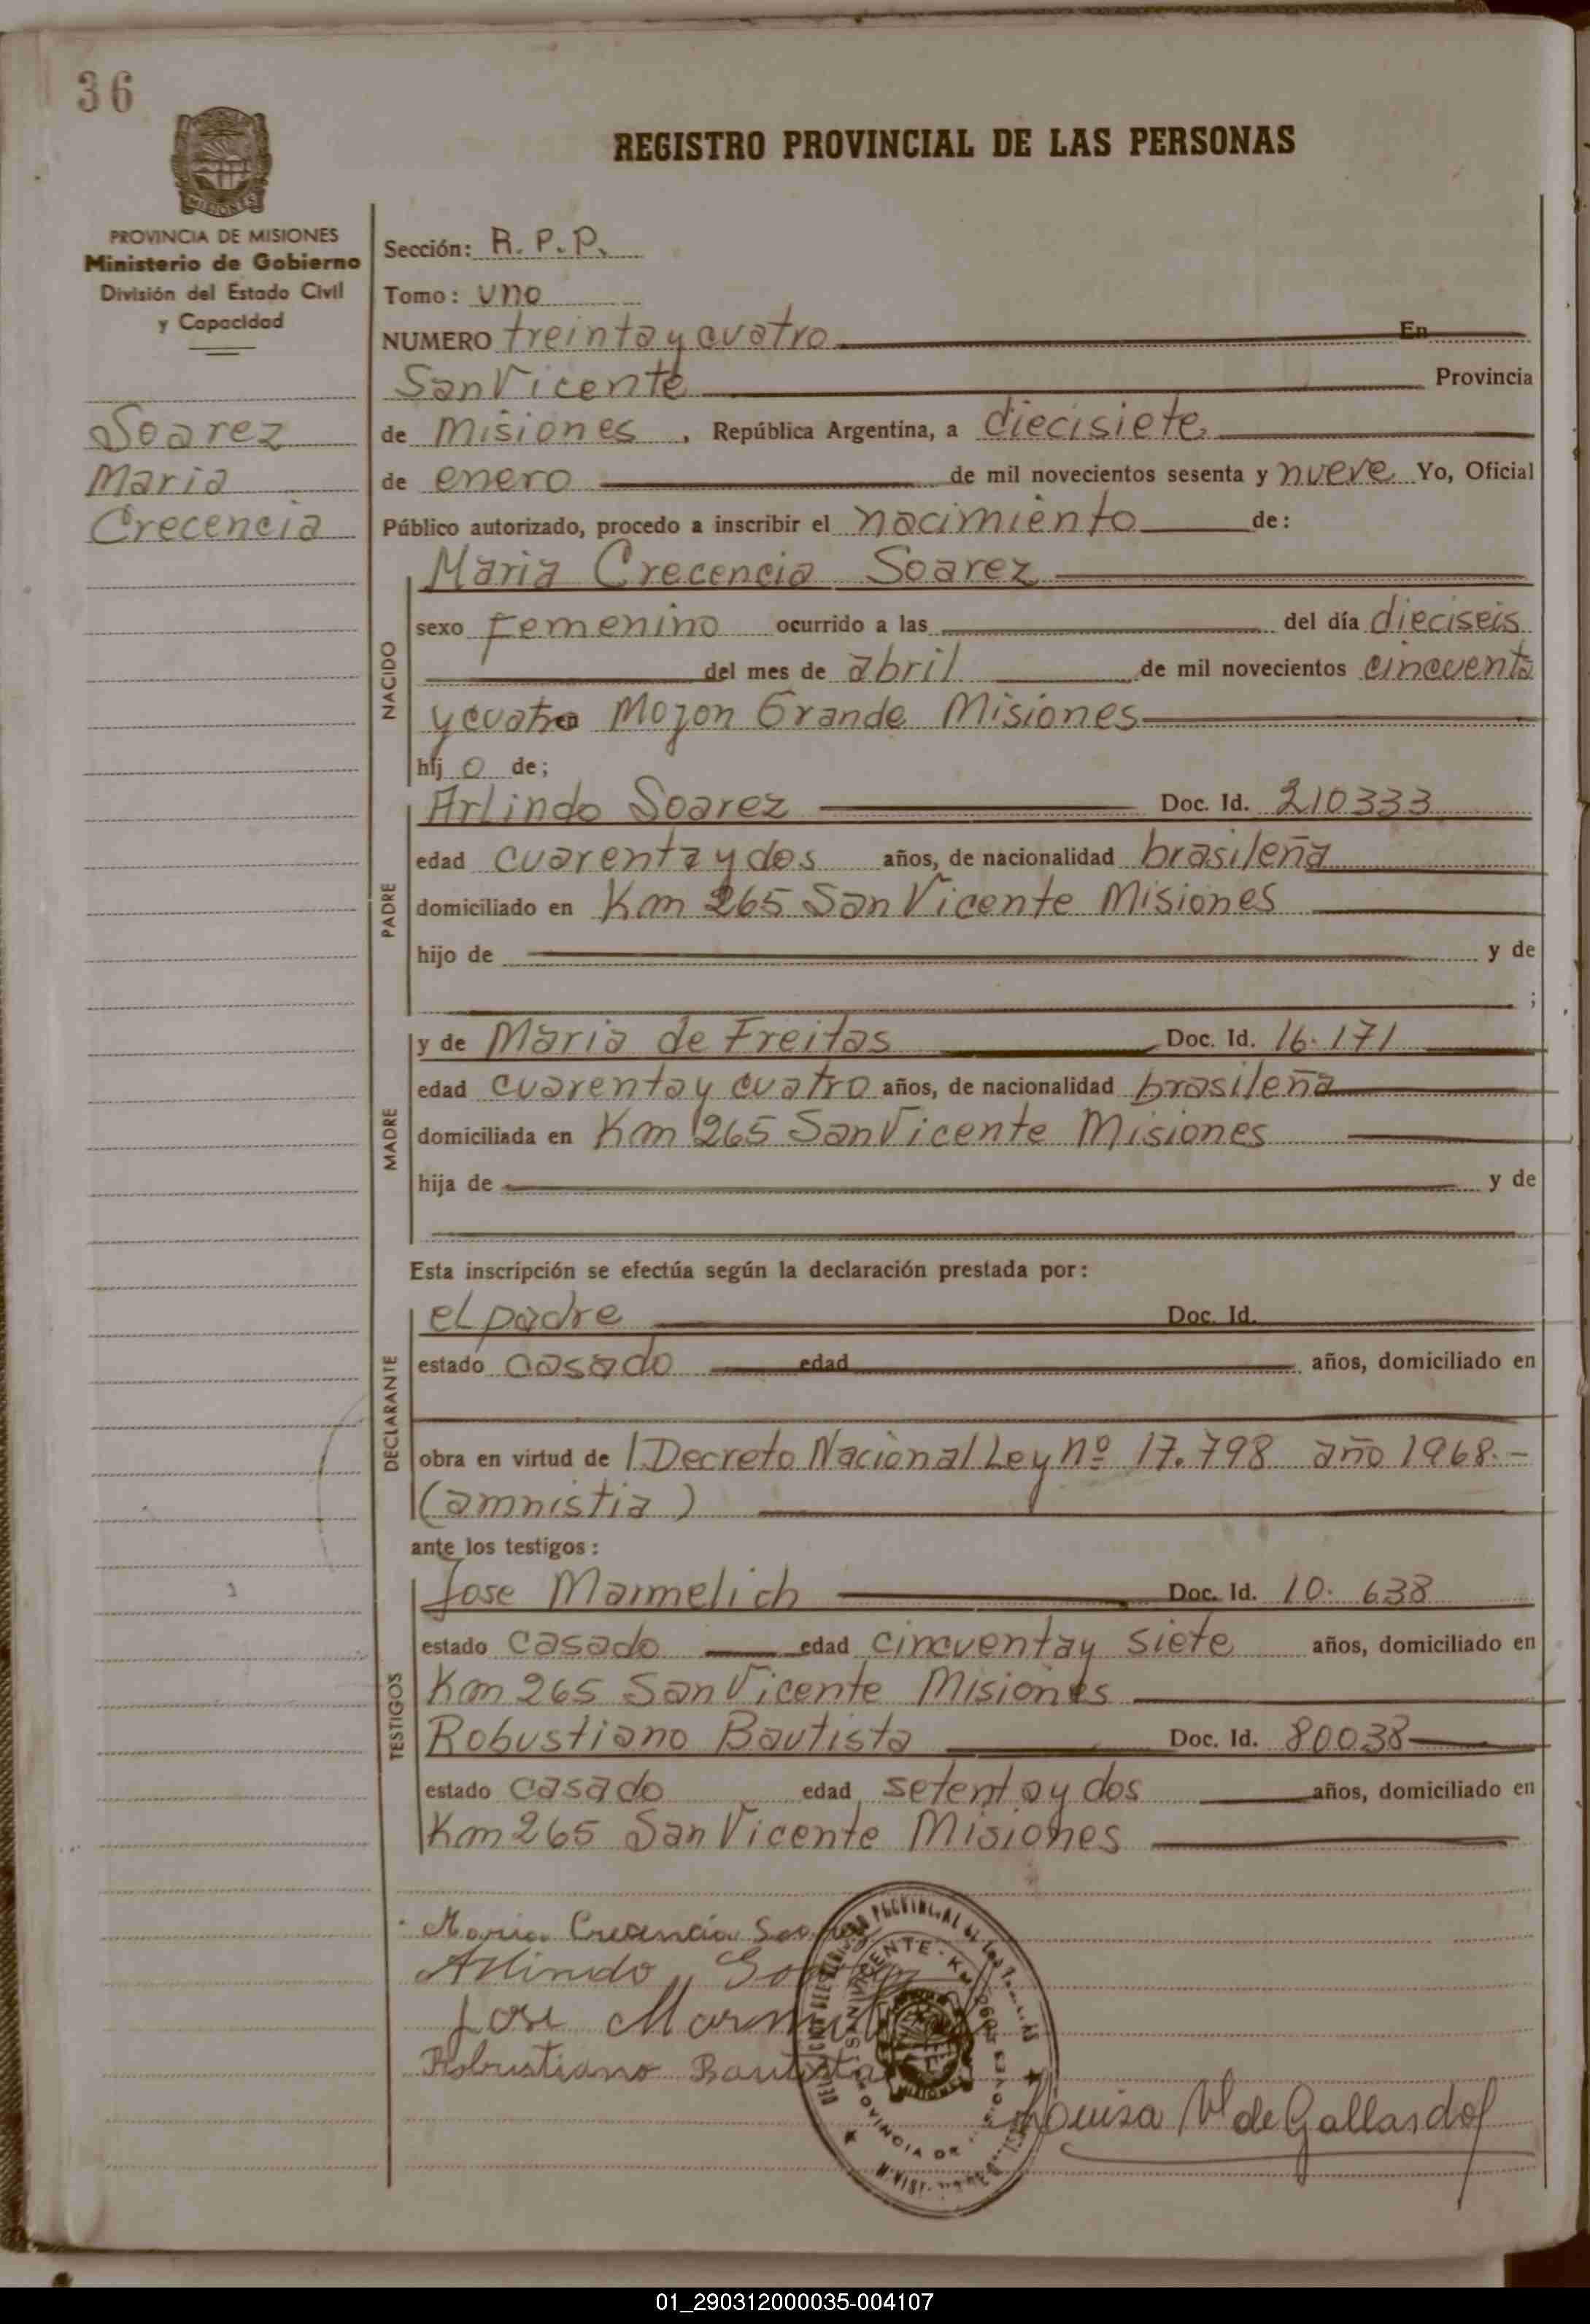 36
REGISTRO PROVINCIAL DE LAS PERSONAS
MISIONES
PROVINCIA DE MISIONES
Ministerio de Gobierno
División del Estado Civil
y Capacidad
Soarez
Maria
Crecencia
Sección: R. P. P.
Tomo: uno
NUMERO treinta y cuatro En
San Vicente Provincia
de Misiones, República Argentina, a diecisiete
de enero de mil novecientos sesenta y nueve Yo, Oficial
Público autorizado, procedo a inscribir el nacimiento de:
NACIDO
Maria Crecencia Soarez
sexo Femenino ocurrido a las del día dieciseis
del mes de abril de mil novecientos cincuenta
y cuatro Mojon Grande Misiones
hij o de;
PADRE
Arlindo Soarez Doc. Id. 210333
edad cuarenta y dos años, de nacionalidad brasileña
domiciliado en Km 265 San Vicente Misiones
hijo de y de
;
MADRE
y de Maria de Freitas Doc. Id. 16.171
edad cuarenta y cuatro años, de nacionalidad brasileña
domiciliada en Km 265 San Vicente Misiones
hija de y de
Esta inscripción se efectúa según la declaración prestada por:
DECLARANTE
el padre Doc. Id.
estado casado edad años, domiciliado en
obra en virtud de l Decreto Nacional Ley Nº 17.798 año 1968.-
(amnistia)
ante los testigos:
TESTIGOS
Jose Marmelich Doc. Id. 10.638
estado casado edad cincuenta y siete años, domiciliado en
Km 265 San Vicente Misiones
Robustiano Bautista Doc. Id. 80038
estado casado edad setenta y dos años, domiciliado en
Km 265 San Vicente Misiones
Maria Crecencia
Arlindo
Jose
Robustiano Bautista
PROVINCIAL DE LAS
VICENTE - KM
PROVINCIA DE
MISIONES
de Gallardo
01_290312000035-004107